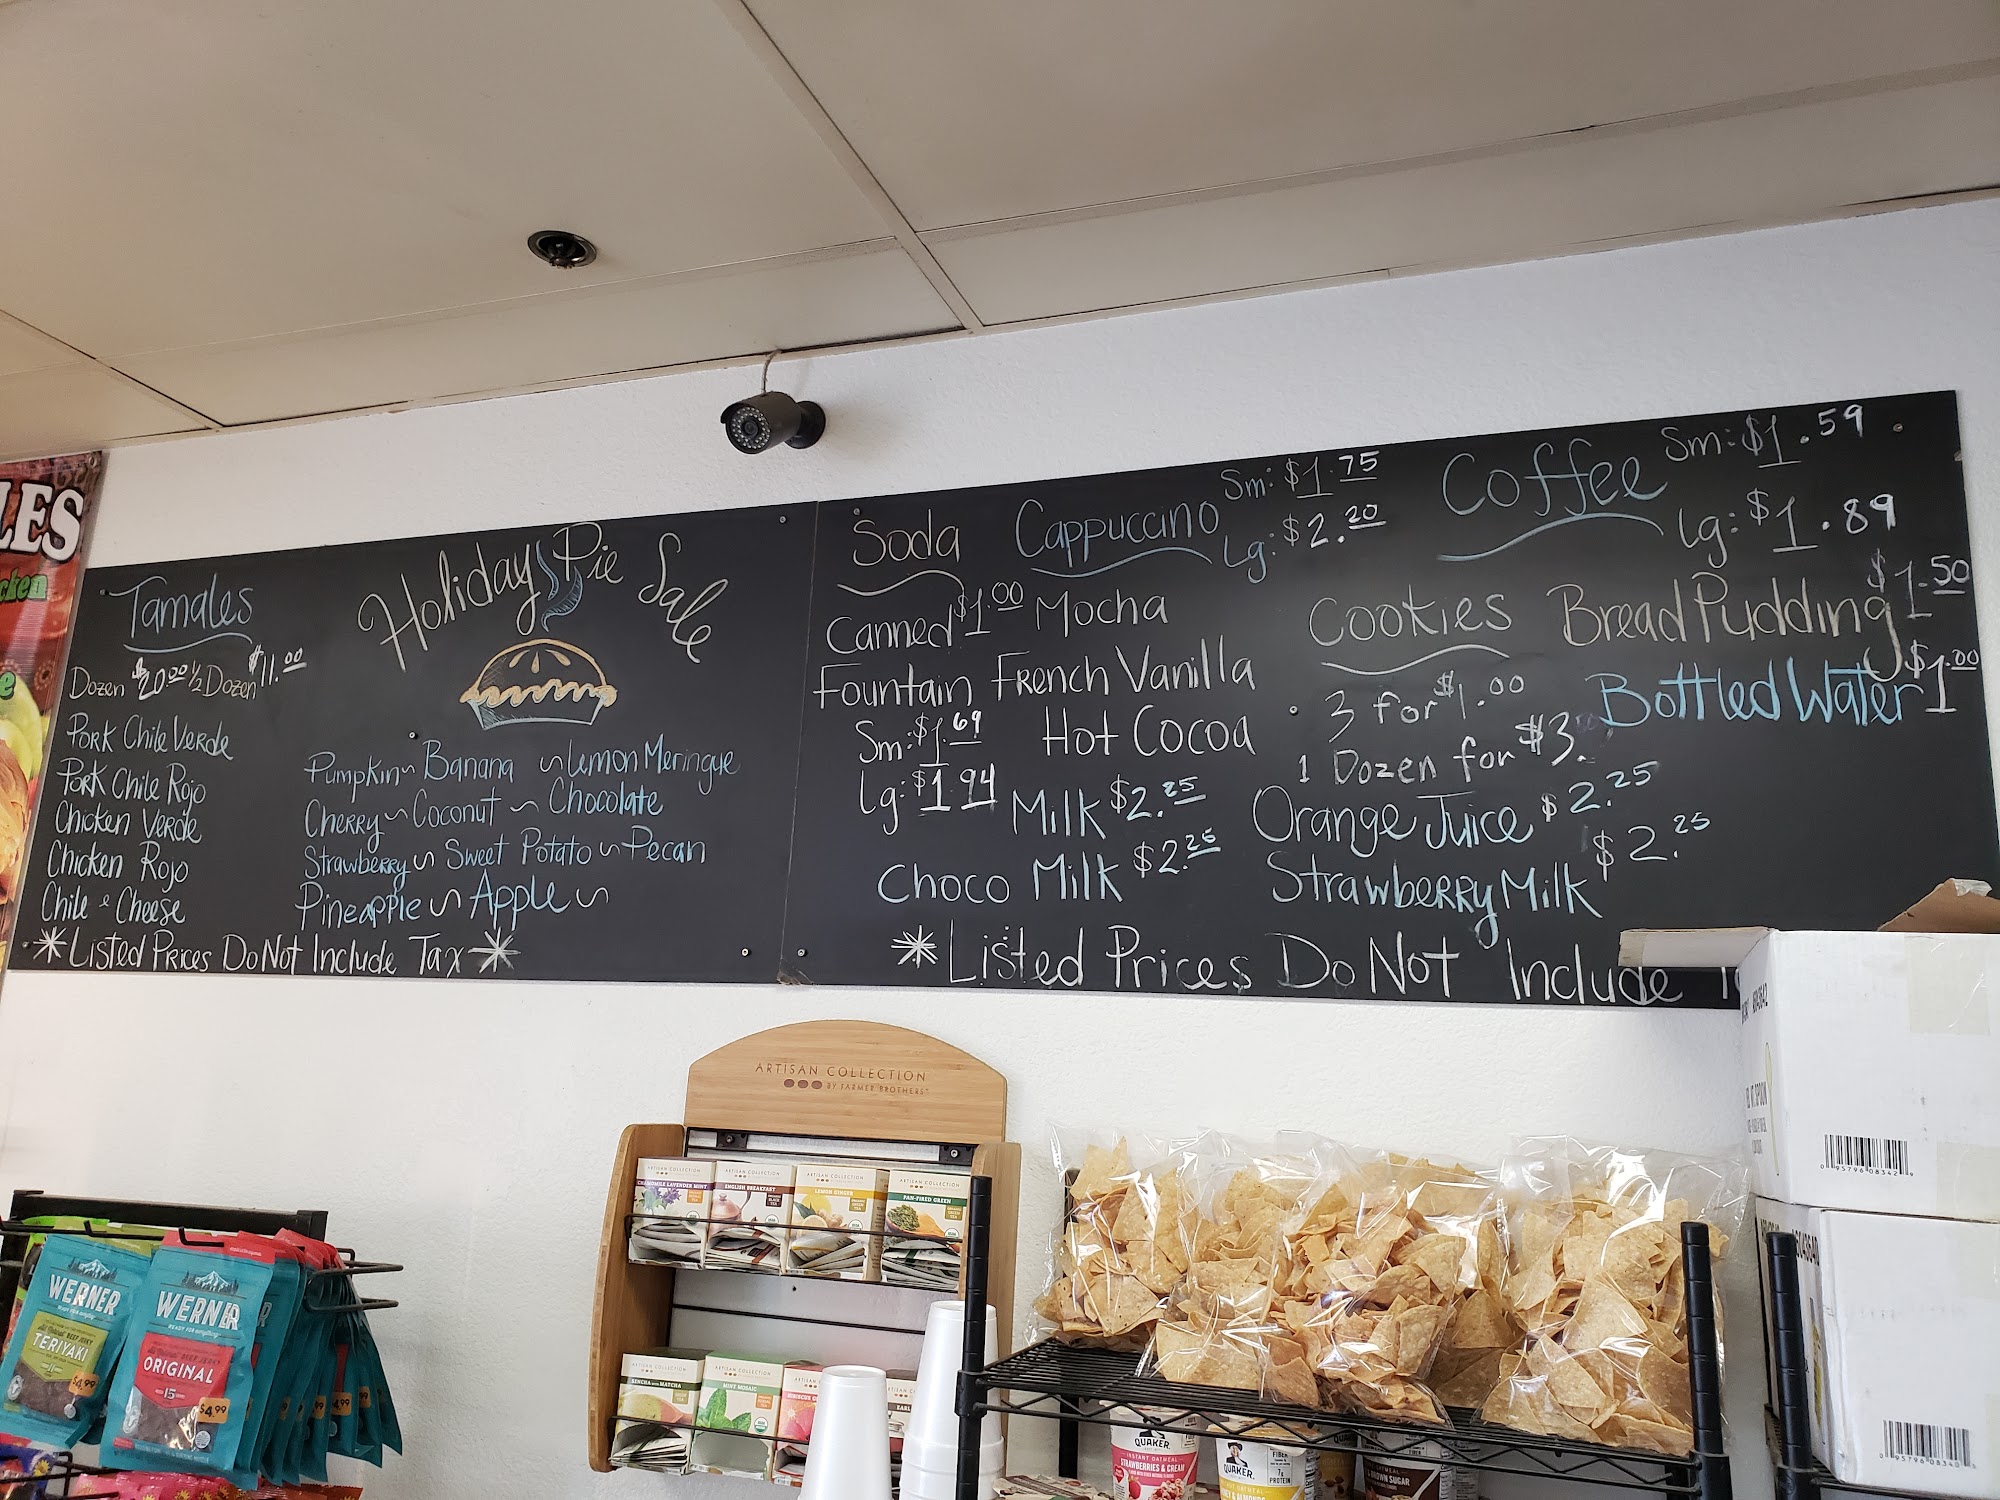 LES
cken
e
Tamales
Dozen $20.00 ½ Dozen $11.00
Pork Chile Verde
Pork Chile Rojo
Chicken Verde
Chicken Rojo
Chile & Cheese
*Listed Prices Do Not Include Tax*
Holiday Pie Sale
Pumpkin ~ Banana ~ Lemon Meringue
Cherry ~ Coconut ~ Chocolate
Strawberry ~ Sweet Potato ~ Pecan
Pineapple ~ Apple ~
Soda
Canned $1.00
Fountain
Sm: $1.69
Lg: $1.94
Cappuccino Sm: $1.75
Lg: $2.20
Mocha
French Vanilla
Hot Cocoa
Milk $2.25
Choco Milk $2.25
Coffee Sm: $1.59
Lg: $1.89
Cookies
3 for $1.00
1 Dozen for $3.
Bread Pudding $1.50
Bottled Water $1.00
Orange Juice $2.25
Strawberry Milk $2.25
*Listed Prices Do Not Include
ARTISAN COLLECTION
BY FARMER BROTHERS
ARTISAN COLLECTION
CHAMOMILE LAVENDER MINT
ARTISAN COLLECTION
ENGLISH BREAKFAST
ARTISAN COLLECTION
LEMON GINGER
ARTISAN COLLECTION
PAN-FIRED GREEN
SENCHA WITH MATCHA
ARTISAN COLLECTION
MINT MOSAIC
ARTISAN COLLECTION
HIBISCUS
EARL
WERNER
BEEF JERKY
TERIYAKI
11
$4.99
WERNER
READY FOR everything
BEEF JERKY
ORIGINAL
15
$4.99
QUAKER
INSTANT OATMEAL
STRAWBERRIES & CREAM
QUAKER
FIBER
7g
PROTEIN
& ALMONDS
FIBER
BROWN SUGAR
SPOON
0 95796 08342 9
0 95796 08340